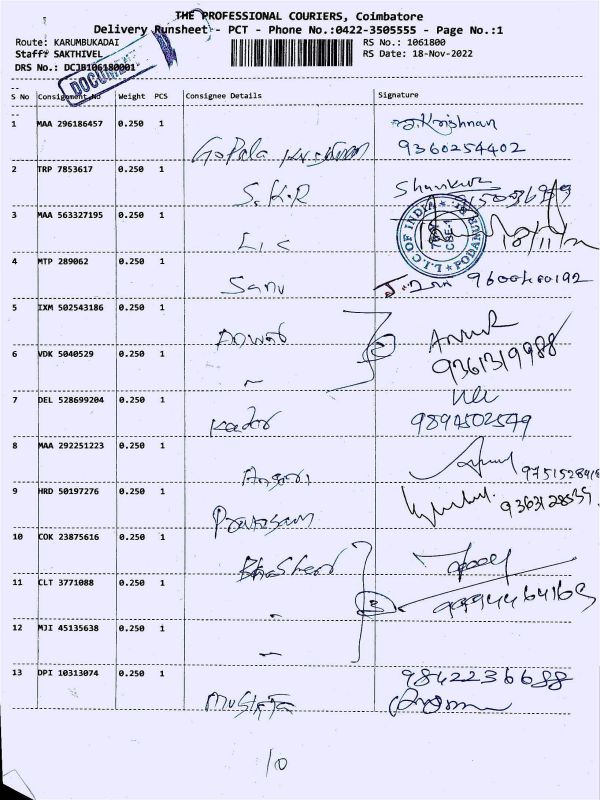 THE PROFESSIONAL COURIERS, Coimbatore
Delivery Runsheet - PCT - Phone No.:0422-3505555 - Page No.:1
Route: KARUMBUKADAI RS No.: 1061800
Staff: SAKTHIVEL RS Date: 18-Nov-2022
DRS No.: DCJB106180001
DOCUMENT
S No Consignment No Weight PCS Consignee Details Signature
1 MAA 296186457 0.250 1 Gopala Krishnan Krishnan
9360254402
2 TRP 7853617 0.250 1 S.K.R Shankar
3 MAA 563327195 0.250 1 L.I.C 18/11/22
L.I.C OF INDIA PODANUR
4 MTP 289062 0.250 1 Sanu 9600400192
5 IXM 502543186 0.250 1 Anwar Anwar
6 VDK 5040529 0.250 1 ~ 2 9361319988
7 DEL 528699204 0.250 1 Kadar
9894502549
8 MAA 292251223 0.250 1 Ansari 9751528918
9 HRD 50197276 0.250 1 Pravasam 9363128539
10 COK 23875616 0.250 1 Bhasheer
11 CLT 3771088 0.250 1 ~ 3 9994464163
12 MJI 45135638 0.250 1 ~
13 DPI 10313074 0.250 1 Mustafa 9842236688
10